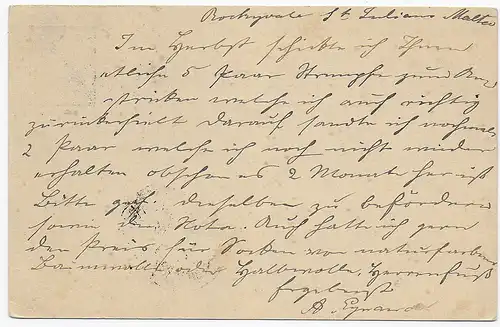 Rockyvale St Julians Malta
Im Herbst schickte ich Ihnen
etliche 5 Paar Strümpfe zum An-
stricken welche ich auch richtig
zurückerhielt darauf sandte ich nochmals
2 Paar welche ich noch nicht wieder
erhalten obschon es 2 Monate her ist
Bitte gefl. dieselben zu befördern
sowie die Nota. Auch hätte ich gern
den Preis für Socken von naturfarben
Baumwolle oder Halbwolle. Herrenfuß
Ergebenst
A